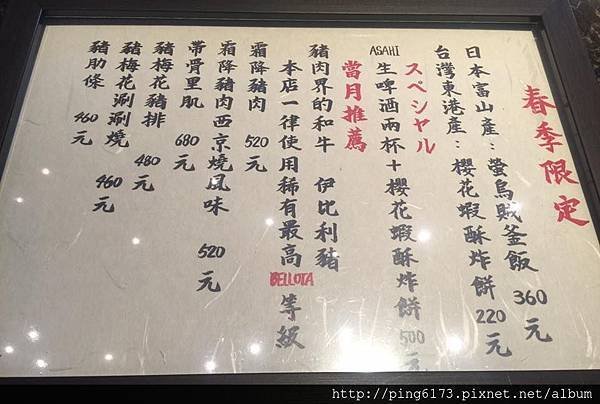 春季限定
日本富山產：螢烏賊釜飯 360元
台灣東港產：櫻花蝦酥炸餅 220元
スペシャル
ASAHI 生啤酒兩杯+櫻花蝦酥炸餅 500元
當月推薦
豬肉界的和牛 伊比利豬
本店一律使用稀有最高BELLOTA等級
霜降豬肉 520元
霜降豬肉西京燒風味 520元
帶骨里肌 680元
豬梅花豬排 480元
豬梅花涮涮燒 460元
豬肋條 460元
http://ping6173.pixnet.net/album